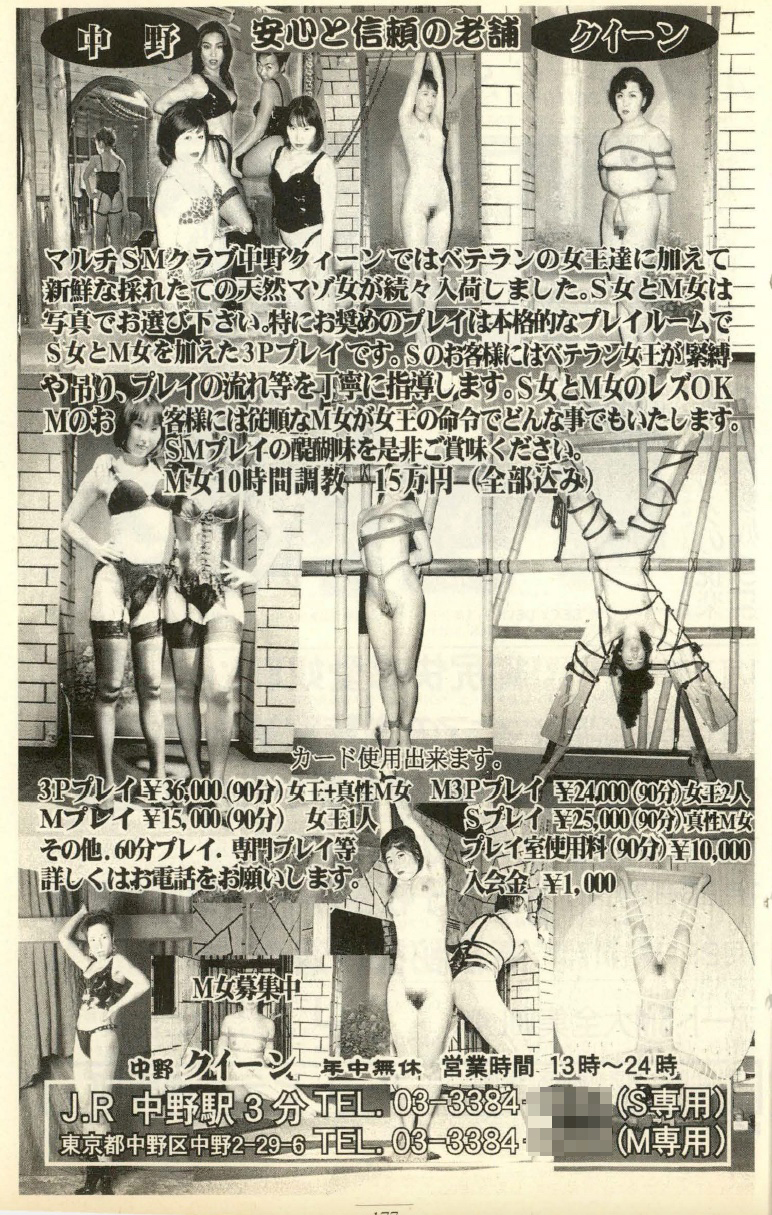 中野 安心と信頼の老舗 クイーン
マルチSMクラブ中野クィーンではベテランの女王達に加えて
新鮮な採れたての天然マゾ女が続々入荷しました。S女とM女は
写真でお選び下さい。特にお奨めのプレイは本格的なプレイルームで
S女とM女を加えた3Pプレイです。Sのお客様にはベテラン女王が緊縛
や吊り、プレイの流れ等を丁寧に指導します。S女とM女のレズOK
Mのお客様には従順なM女が女王の命令でどんな事でもいたします。
SMプレイの醍醐味を是非ご賞味ください。
M女10時間調教 15万円 (全部込み)
カード使用出来ます。
3Pプレイ ¥36,000(90分)女王+真性M女
Mプレイ ¥15,000(90分) 女王1人
その他.60分プレイ.専門プレイ等
詳しくはお電話をお願いします。
M3Pプレイ ¥24,000(90分)女王2人
Sプレイ ¥25,000(90分)真性M女
プレイ室使用料(90分)¥10,000
入会金 ¥1,000
M女募集中
中野 クイーン 年中無休 営業時間 13時〜24時
J.R 中野駅3分 TEL. 03-3384- (S専用)
東京都中野区中野2-29-6 TEL. 03-3384- (M専用)